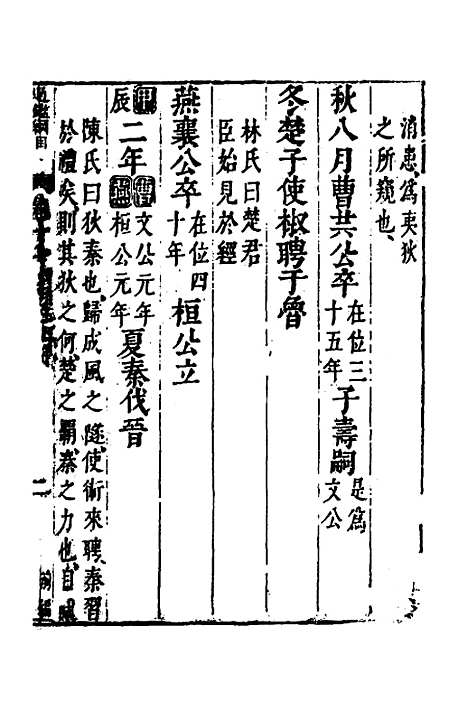 消患為夷狄
之所窺也
秋八月曹共公卒在位三十五年子壽嗣是為文公
冬楚子使椒聘于魯
林氏曰楚君
臣始見於經
燕襄公卒在位四十年桓公立
甲辰二年文公元年桓公元年夏秦伐晉
陳氏曰狄秦也歸成風之襚使術來聘秦習
於禮矣則其狄之何楚之霸秦之力也自
通鑑綱目
二